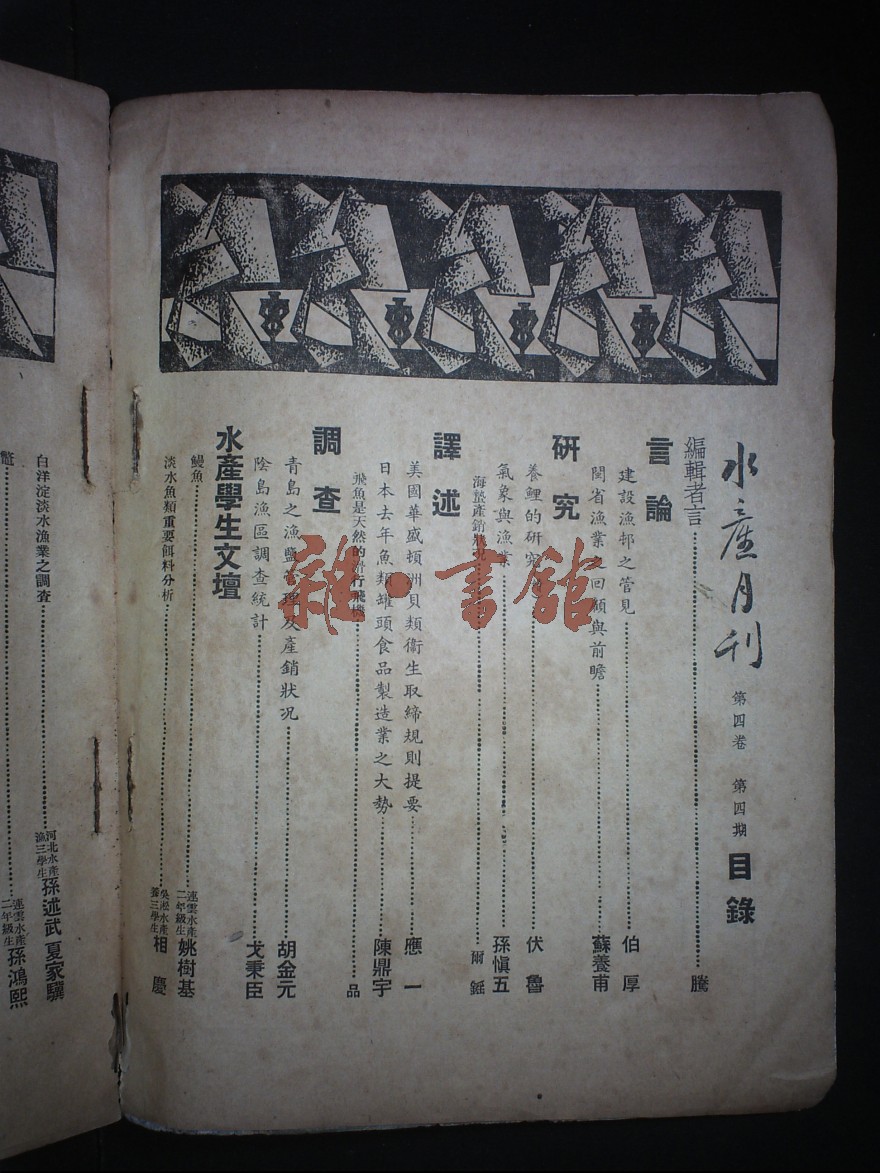 水產月刊 第四卷 第四期 目錄
編輯者言 騰
言論
建設漁邨之管見 伯厚
閩省漁業之回顧與前瞻 蘇養甫
研究
養鯉的研究 伏魯
氣象與漁業 孫慎五
海蜇產銷狀況 爾
譯述
美國華盛頓洲貝類衞生取締規則提要 應一
日本去年魚類罐頭食品製造業之大勢 陳鼎宇
飛魚是天然的滑行飛機 品
調查
青島之漁鹽管理及產銷狀况 胡金元
陰島漁區調查統計 戈秉臣
水產學生文壇
鰻魚 連雲水產二年級生 姚樹基
淡水魚類重要餌料分析 吳淞水產養三學生 相慶
白洋淀淡水漁業之調查 河北水產漁三學生 孫述武 夏家驥
連雲水產二年級生 孫鴻熙
雜·書館